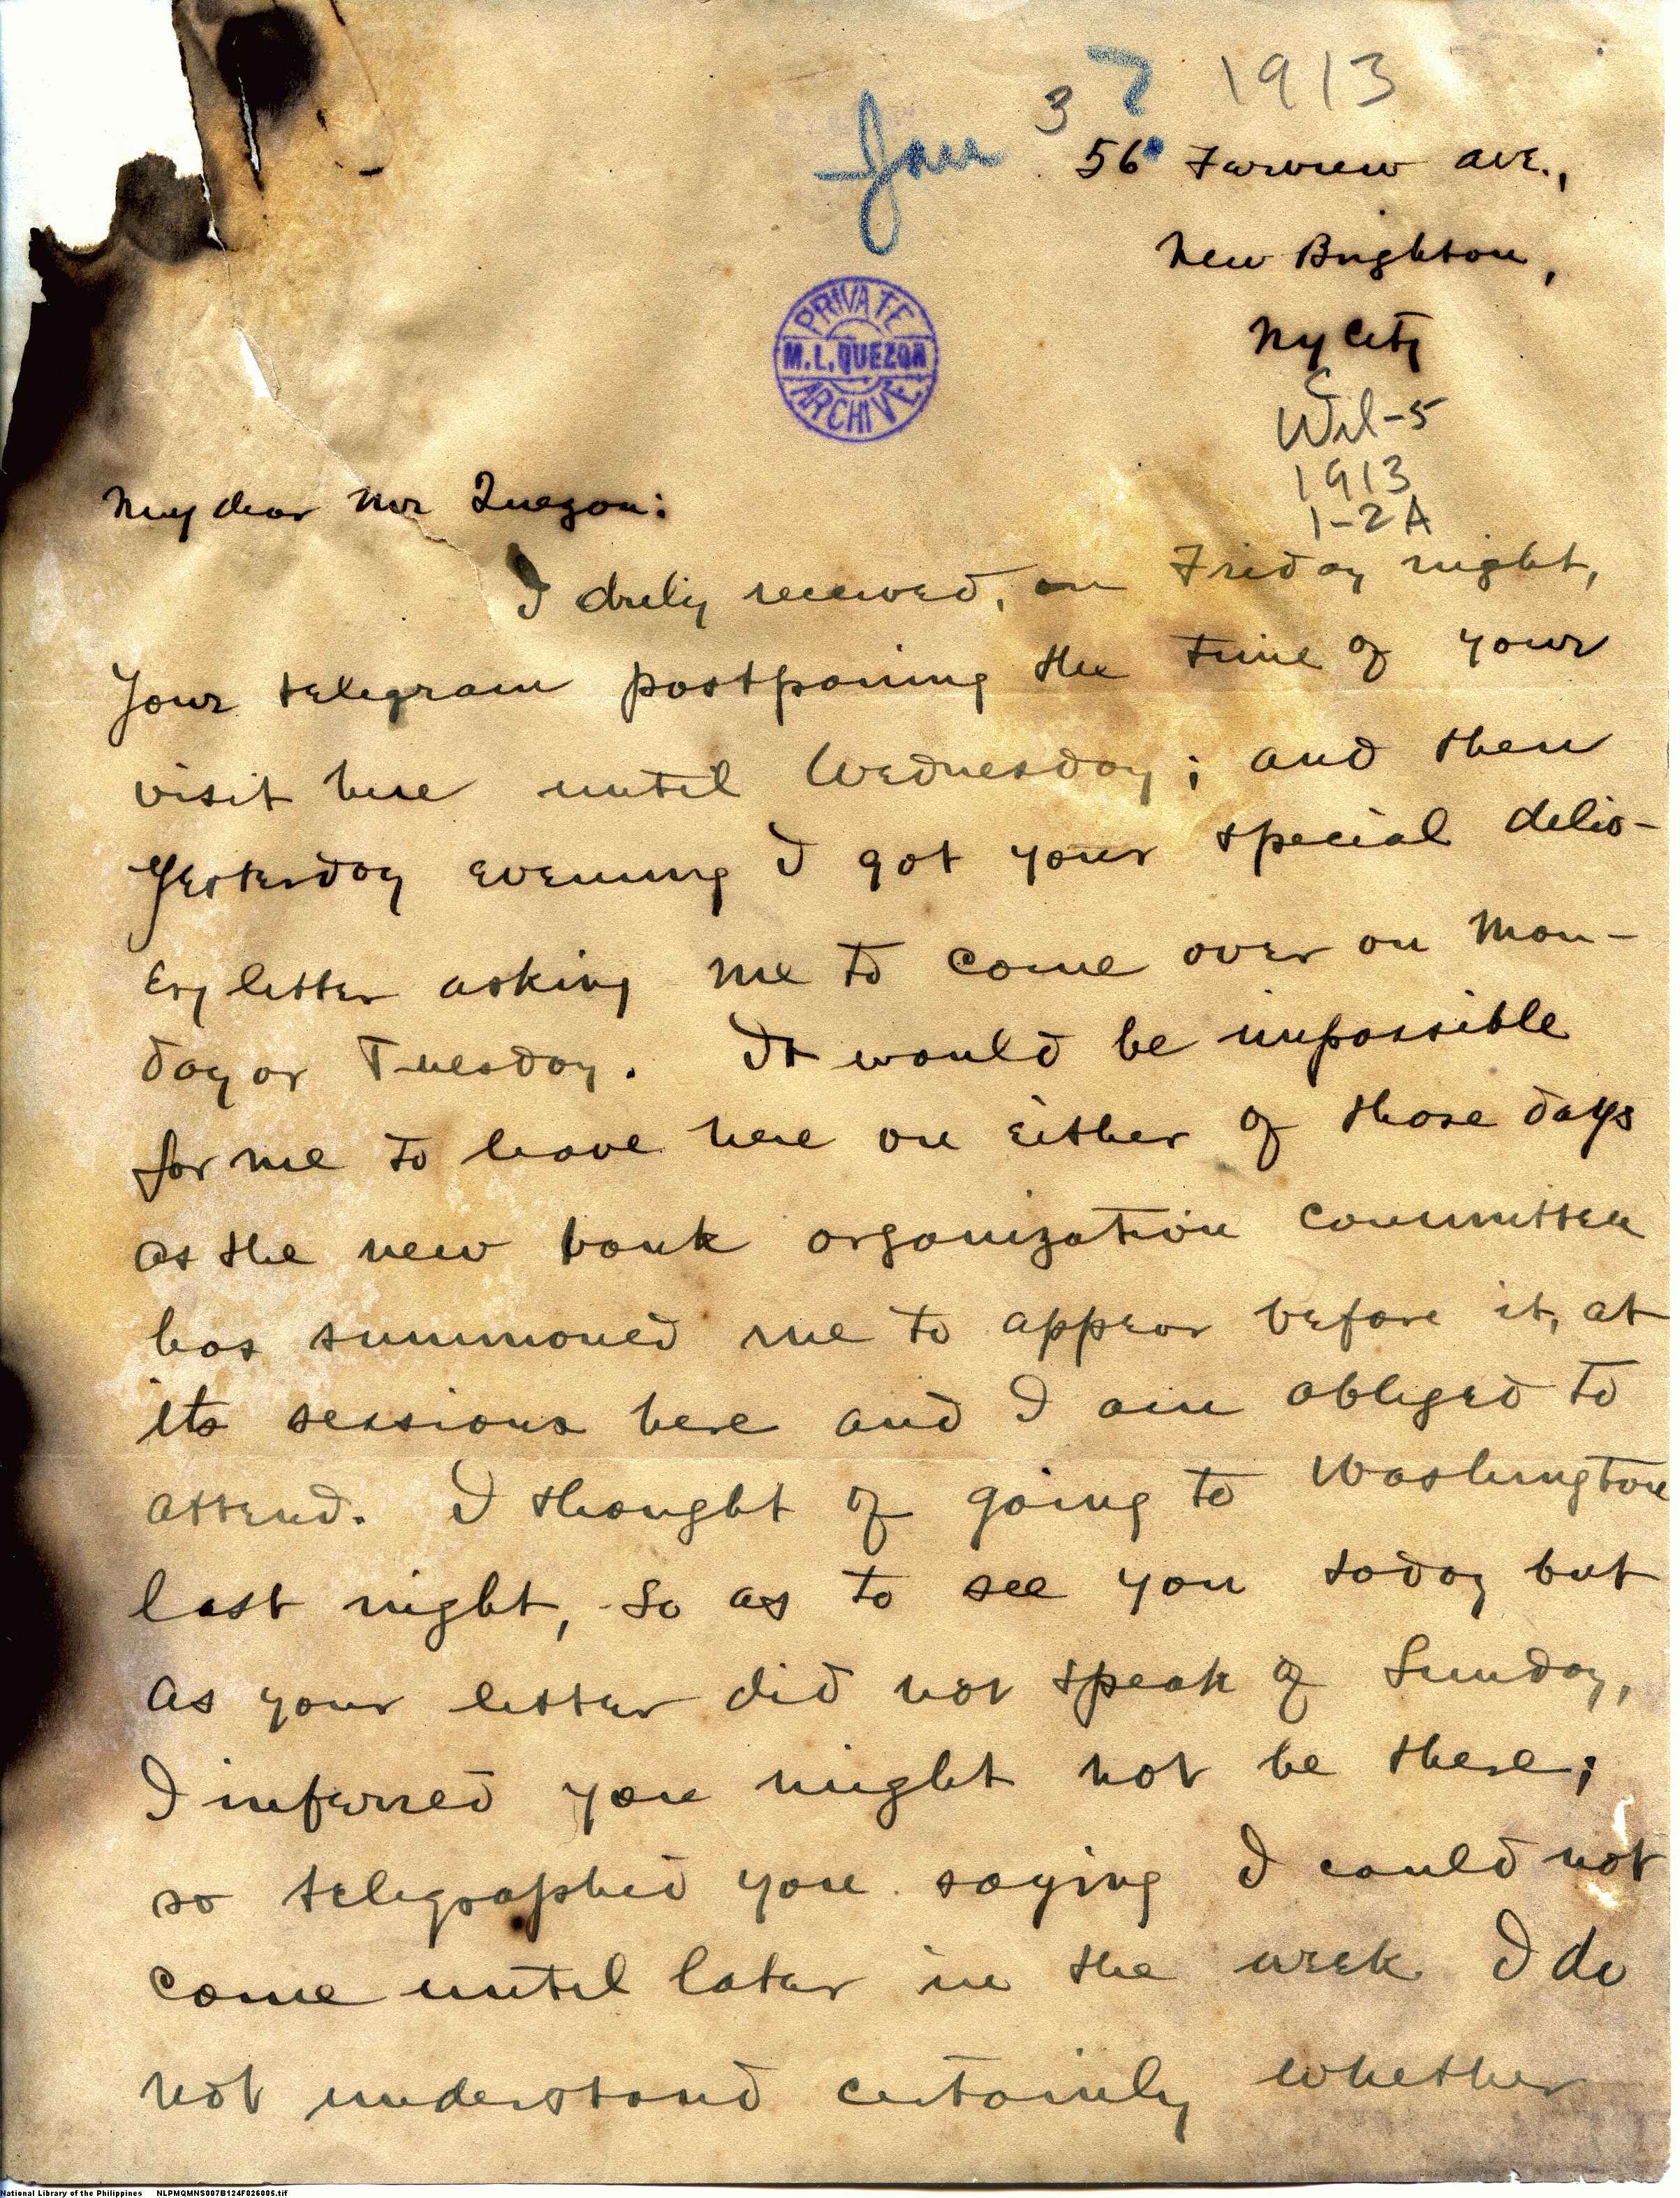 Jan 3 7 1913
56 Fairview ave.,
New Brighton,
NY City
Wil-5
1913
1-2A
PRIVATE
M.L. QUEZON
ARCHIVE
My dear Mr Quezon:
I duly received, on Friday night,
your telegram postponing the time of your
visit here until Wednesday; and then
yesterday evening I got your special deliv-
ery letter asking me to come over on Mon-
day or Tuesday. It would be impossible
for me to leave here on either of those days
as the new bank organization committee
has summoned me to appear before it, at
its sessions here and I am obliged to
attend. I thought of going to Washington
last night, so as to see you today but
as your letter did not speak of Sunday,
I inferred you might not be there;
so telegraphed you saying I could not
come until later in the week. I do
not understand certainly whether
National Library of the Philippines NLPMQMNS007B124F026006.tif